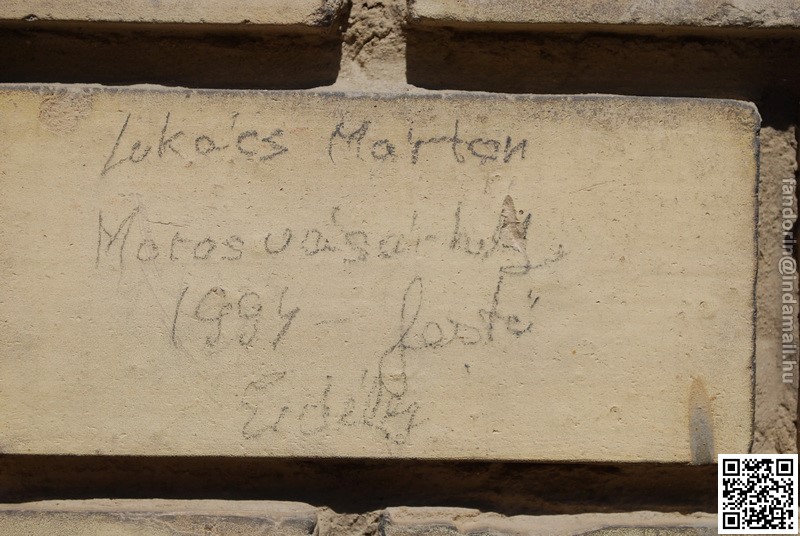 Lukács Márton
Marosvásárhely,
1994 - festő
Erdély
fandorin@indamail.hu